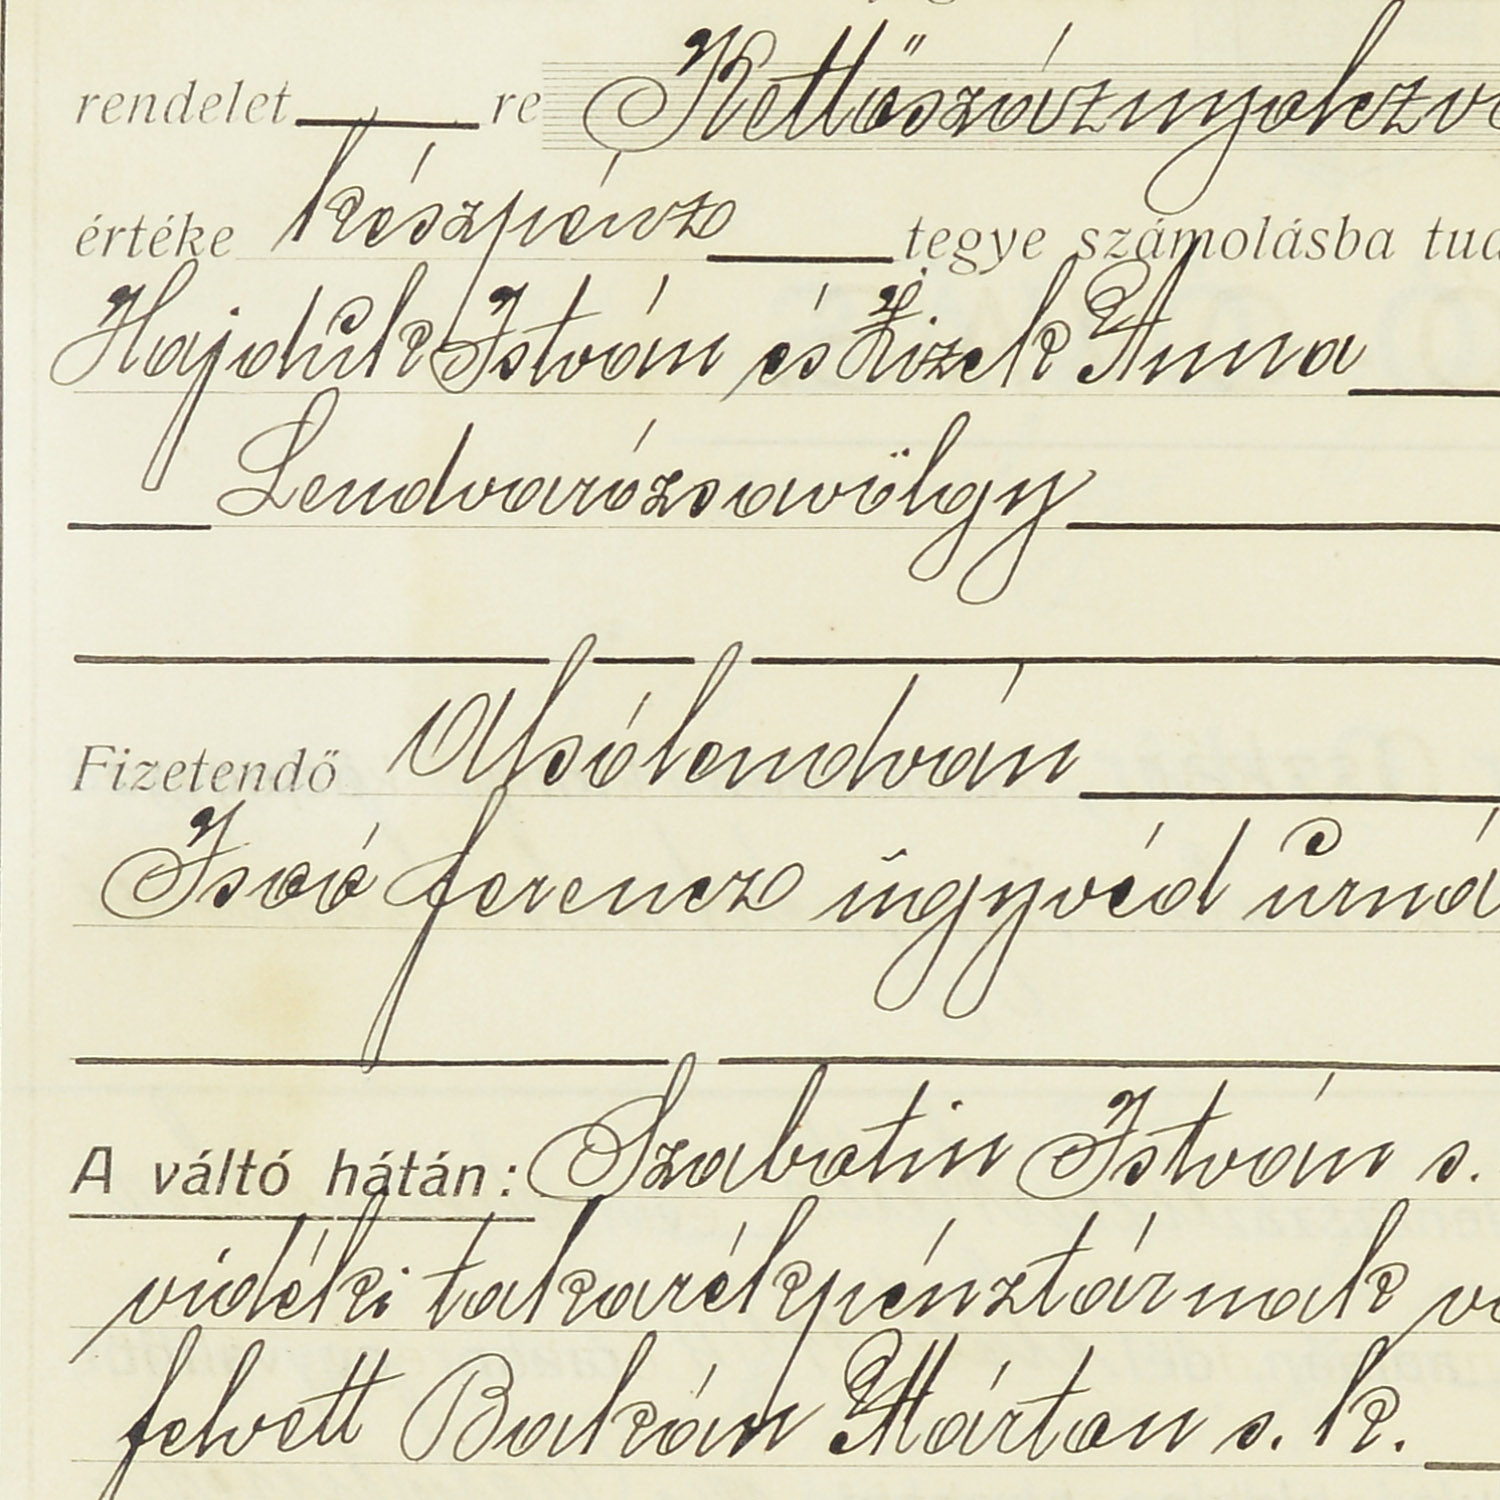 rendelet re Kettőszáznyolczva
értéke készpénz tegye számolásba tud
Hajduk István és Zizek Anna
Lendvarózsavölgy
Fizetendő Alsólendván
Isoó ferencz ügyvéd urná
A váltó hátán: Szabotin István s.
vidéki takarékpénztárnak va
felvett Bakán Márton s. k.